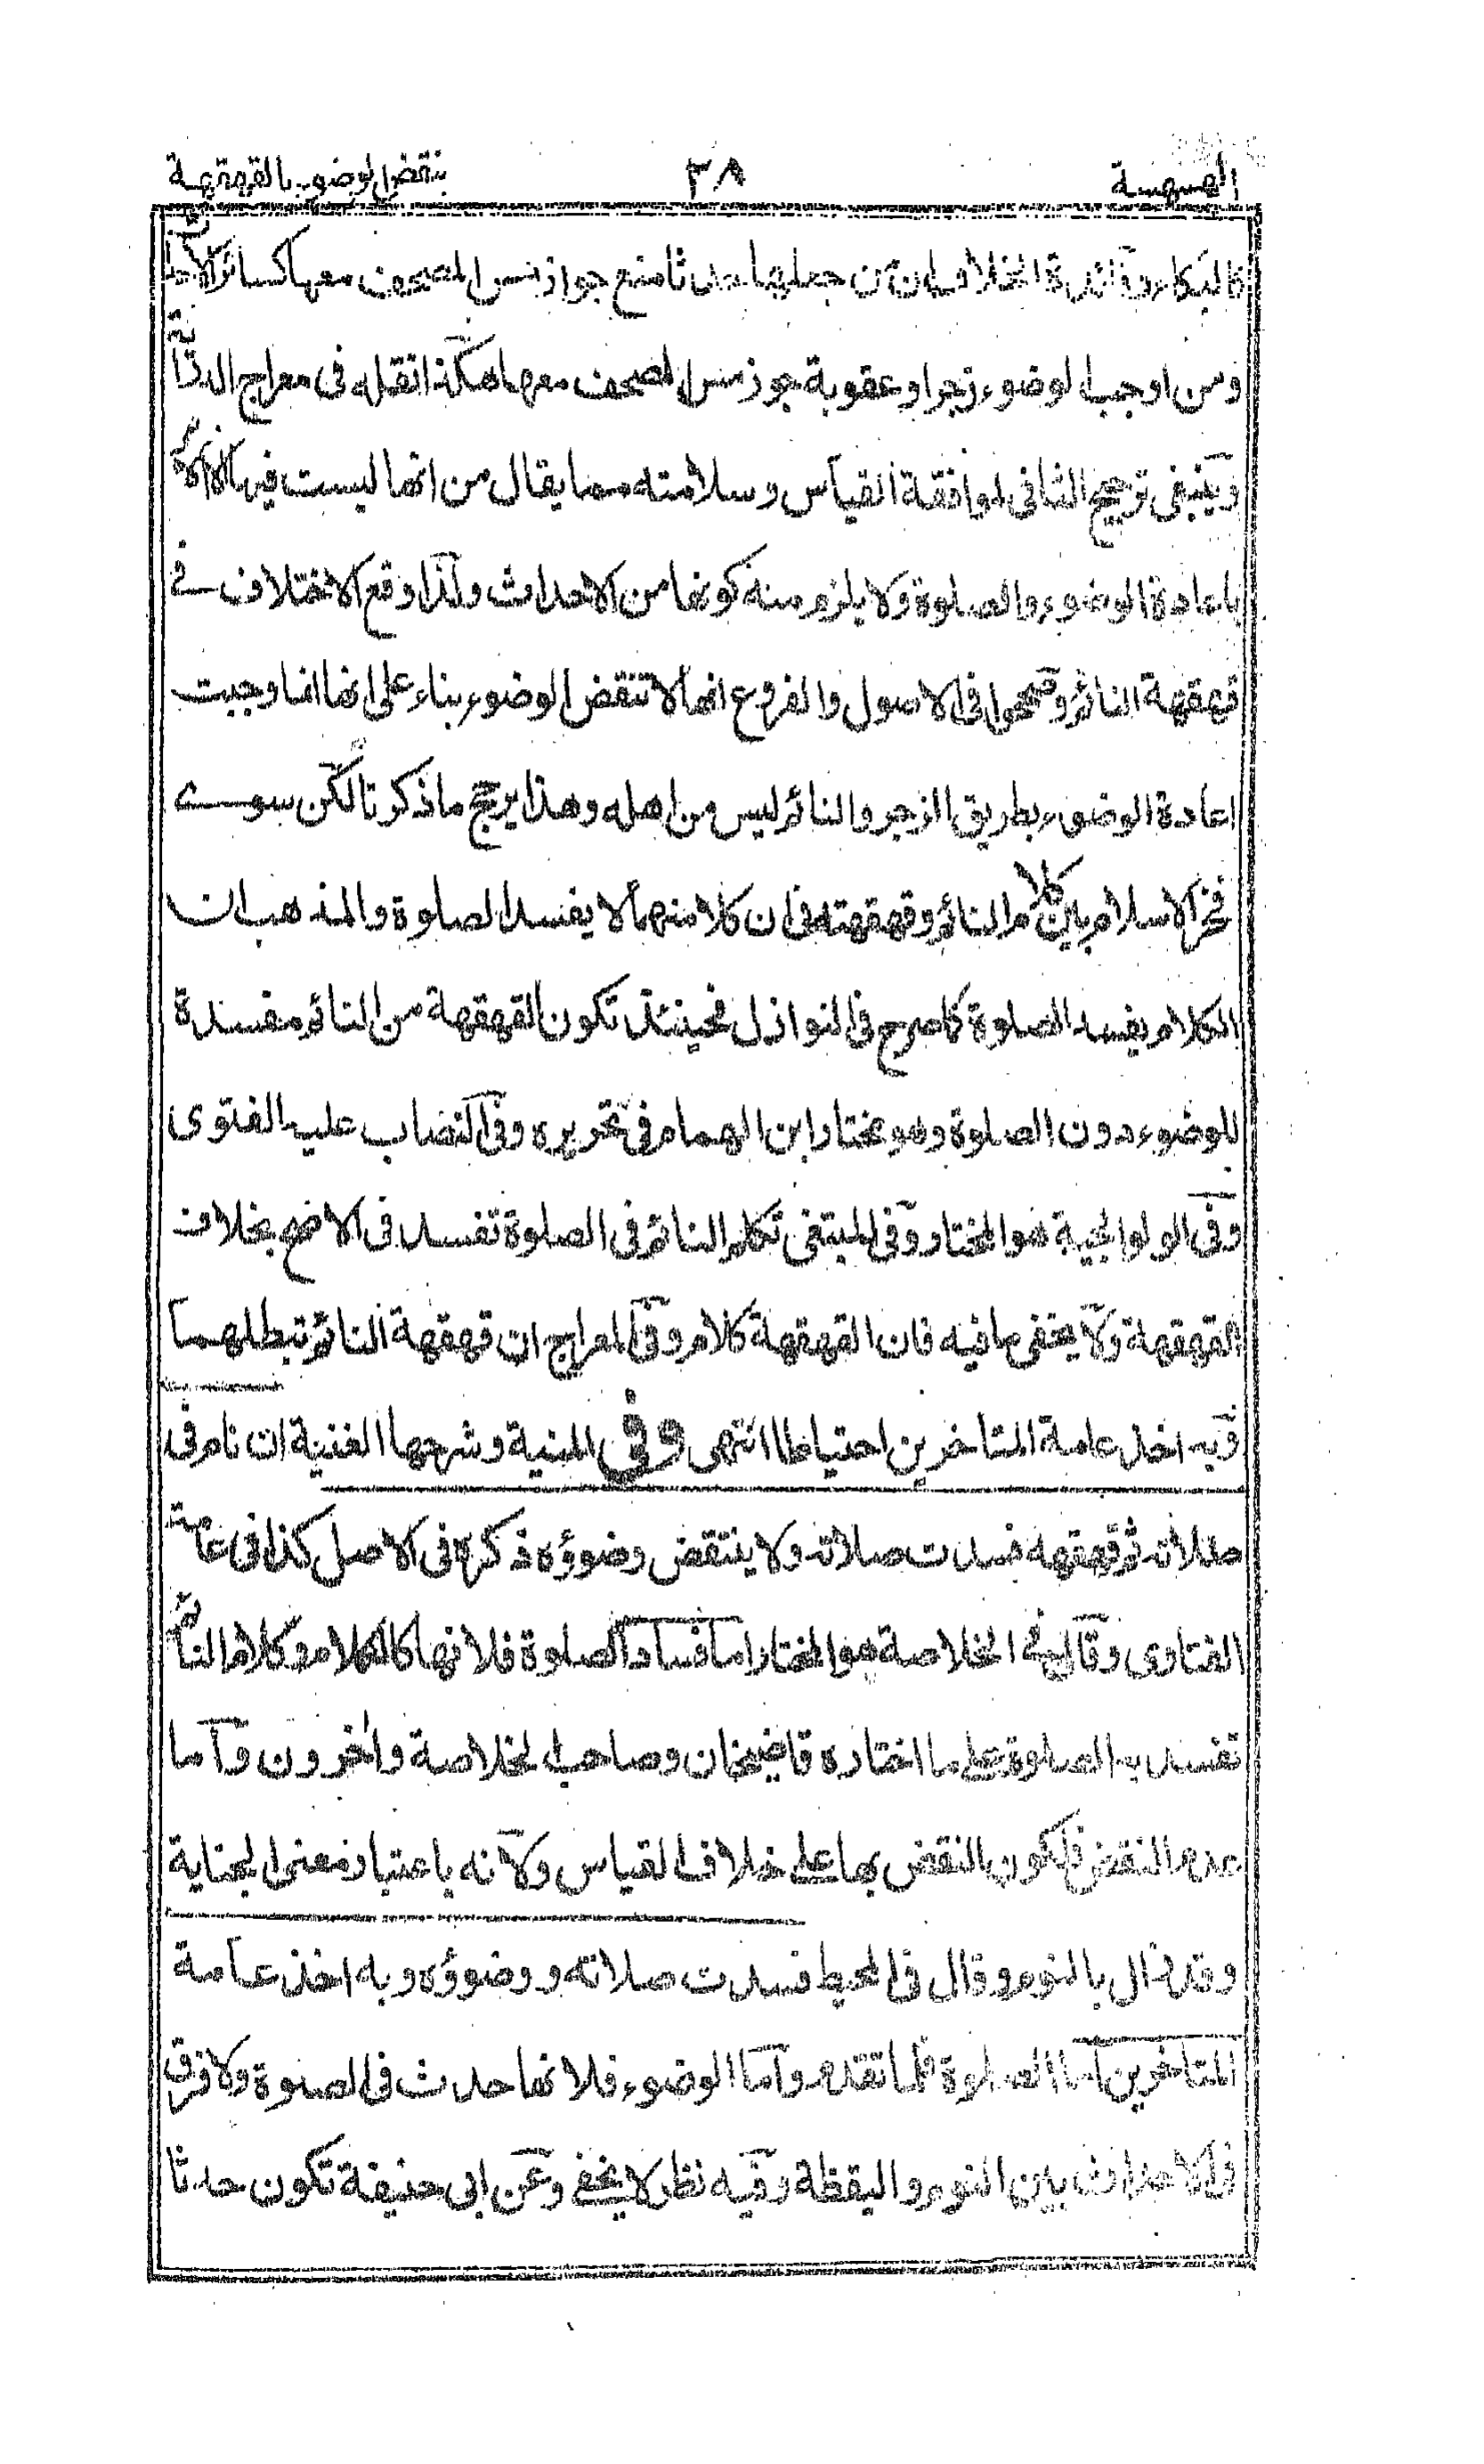 الهسهسة ٣٨ بنقض الوضوء بالقهقهة
كالبكاء وفائدة الخلاف ان من جعلها حدثا منع جواز مس المصحف معها كسائر الاحداث
ومن اوجب الوضوء زجرا وعقوبة جوز مس المصحف معها هكذا نقله فى معراج الدراية
وينبغى ترجيح الثانى لموافقة القياس وسلامته مما يقال من انها ليست فيها الا الامر
باعادة الوضوء والصلوة ولا يلزم منه كونها من الاحداث ولذا وقع الاختلاف فے
قهقهة النائم وصححوا فى الاصول والفروع انها لا تنقض الوضوء بناء على انها انما وجبت
اعادة الوضوء بطريق الزجر والنائم ليس من اهله وهذا يرجح ما ذكرنا لكن سوے
فخر الاسلام بين كلام النائم وقهقهته فى ان كلا منهما لا يفسد الصلوة والمذهب ان
الكلام يفسد الصلوة كما صرح فى النوازل فحينئذ تكون القهقهة من النائم مفسدة
للوضوء دون الصلوة وهو مختار ابن الهمام فى تحريره وفى النصاب عليه الفتوى
وفى الولوالجية هو المختار وفى المبتغى تكلم النائم فى الصلوة تفسد فى الاصح بخلاف
القهقهة ولا يخفى ما فيه فان القهقهة كلام وفى المعراج ان قهقهة النائم تبطلهما
وبه اخذ عامة المتاخرين احتياطا انتهى وفى المنية وشرحها الغنية ان نام فى
صلاته ثم قهقهه فسدت صلاته ولا ينتقض وضوؤه ذكره فى الاصل كذا فى عامة
الفتاوى وقال فے الخلاصة هو المختار اما فساد الصلوة فلانها كالكلام وكلام النائم
تفسد به الصلوة على ما اختاره قاضيخان وصاحب الخلاصة واخرون واما
عدم النقض فلكون النقض بها على خلاف القياس ولانه باعتبار معنى الجناية
وقد زال بالنوم وقال فى المحيط فسدت صلاته ووضوؤه وبه اخذ عامة
المتاخرين اما الصلوة فلما تقدم واما الوضوء فلانها حدث فى الصلوة ولا فرق
فى الاحداث بين النوم واليقظة وفيه نظر لا يخفے وعن ابى حنيفة تكون حدثا